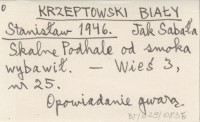 KRZEPTOWSKI BIAŁY
Stanisław 1946. Jak Sabała
Skalne Podhale od smoka
wybawił. — Wieś 3,
nr 25.
Opowiadanie gwarą.